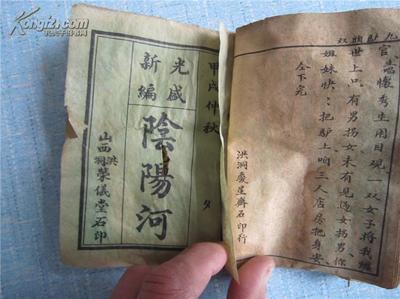 官唱懷秀生用目观一双女子将我纏
世上只有男拐女未有見過女拐男你
姐妹快：把驴上咱三人店房把身安
全下完
洪洞慶星齋石印行
甲戌仲秋
光盛
新編
陰陽河
山西洪洞榮儀堂石印